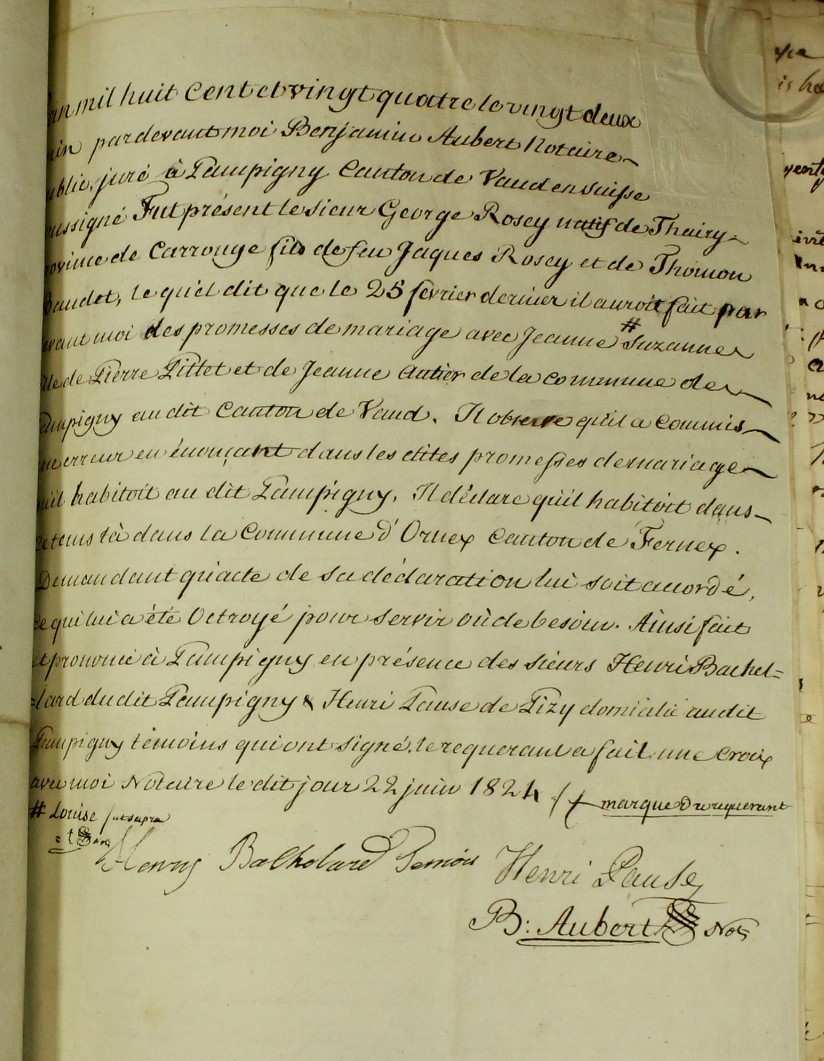 L'an mil huit Cent et vingt quatre le vingt deux
juin par devant moi Benjamin Aubert Notaire
public, juré à Pampigny Canton de Vaud en Suisse
soussigné Fut présent le sieur George Rosey natif de Thairy
province de Carrouge fils de feu Jaques Rosey et de Thomon
Baudet, le quel dit que le 25 février dernier il auroit fait par
devant moi des promesses de mariage avec Jeanne # Suzanne
fille de Pierre Pittet et de Jeanne Autier de la commune de
Pampigny au dit Canton de Vaud. Il observe qu'il a commis
une erreur en énonçant dans les dites promesses de mariage
qu'il habitoit au dit Pampigny. Il déclare qu'il habitoit dans
ce tems là dans la Commune d'Ornex Canton de Fernex.
Demandant qu'acte de sa déclaration lui soit accordé,
ce qui lui a été Octroyé pour servir où de besoin. Ainsi fait
et prononcé à Pampigny en présence des sieurs Henri Bachel=
=lard du dit Pampigny & Henri Pause de Pizy domicilié au dit
Pampigny témoins qui ont signé, le requerant a fait une croix
avec moi Notaire le dit jour 22 juin 1824 /  marque du requerant
# Louise / ut supra
Henry Bachelard Temoin Henri Pause
B: Aubert Not